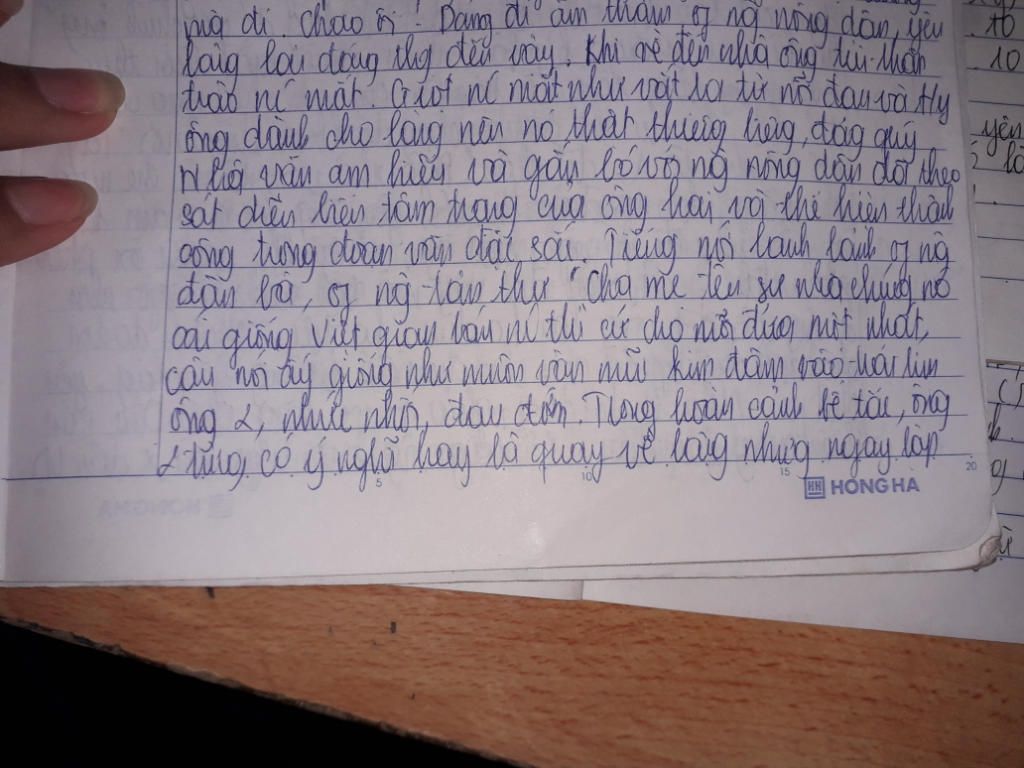 mà đi. Chao ôi! Dáng đi âm thầm of ng nông dân, yêu
làng lại đáng thg đến vậy. Khi về đến nhà ông tủi thân
trào ní mắt. Giọt ní mắt như vật ra từ nỗi đau và ty
ông dành cho làng nên nó thật thiêng liêng, đáng quý
Nhà văn am hiểu và gắn bó vớ ng nông dân đã theo
sát diễn biến tâm trạng của ông hai và thể hiện thành
công trong đoạn văn đặc sắc. Tiếng nói lanh lảnh of ng
đàn bà, of ng tản thư "Cha mẹ tên sư nhà chúng nó
cái giống Việt gian bán ní thì cứ cho mỗi đứa một nhát,
câu nói ấy giống như muôn vàn mũi kim đâm vào trái tim
ông 2, nhức nhối, đau đớn. Trong hoàn cảnh bế tắc, ông
2 từng có ý nghĩ hay là quay về làng nhưg ngay lập
5 10 15 20
HH HỒNG HÀ
10
10
yên